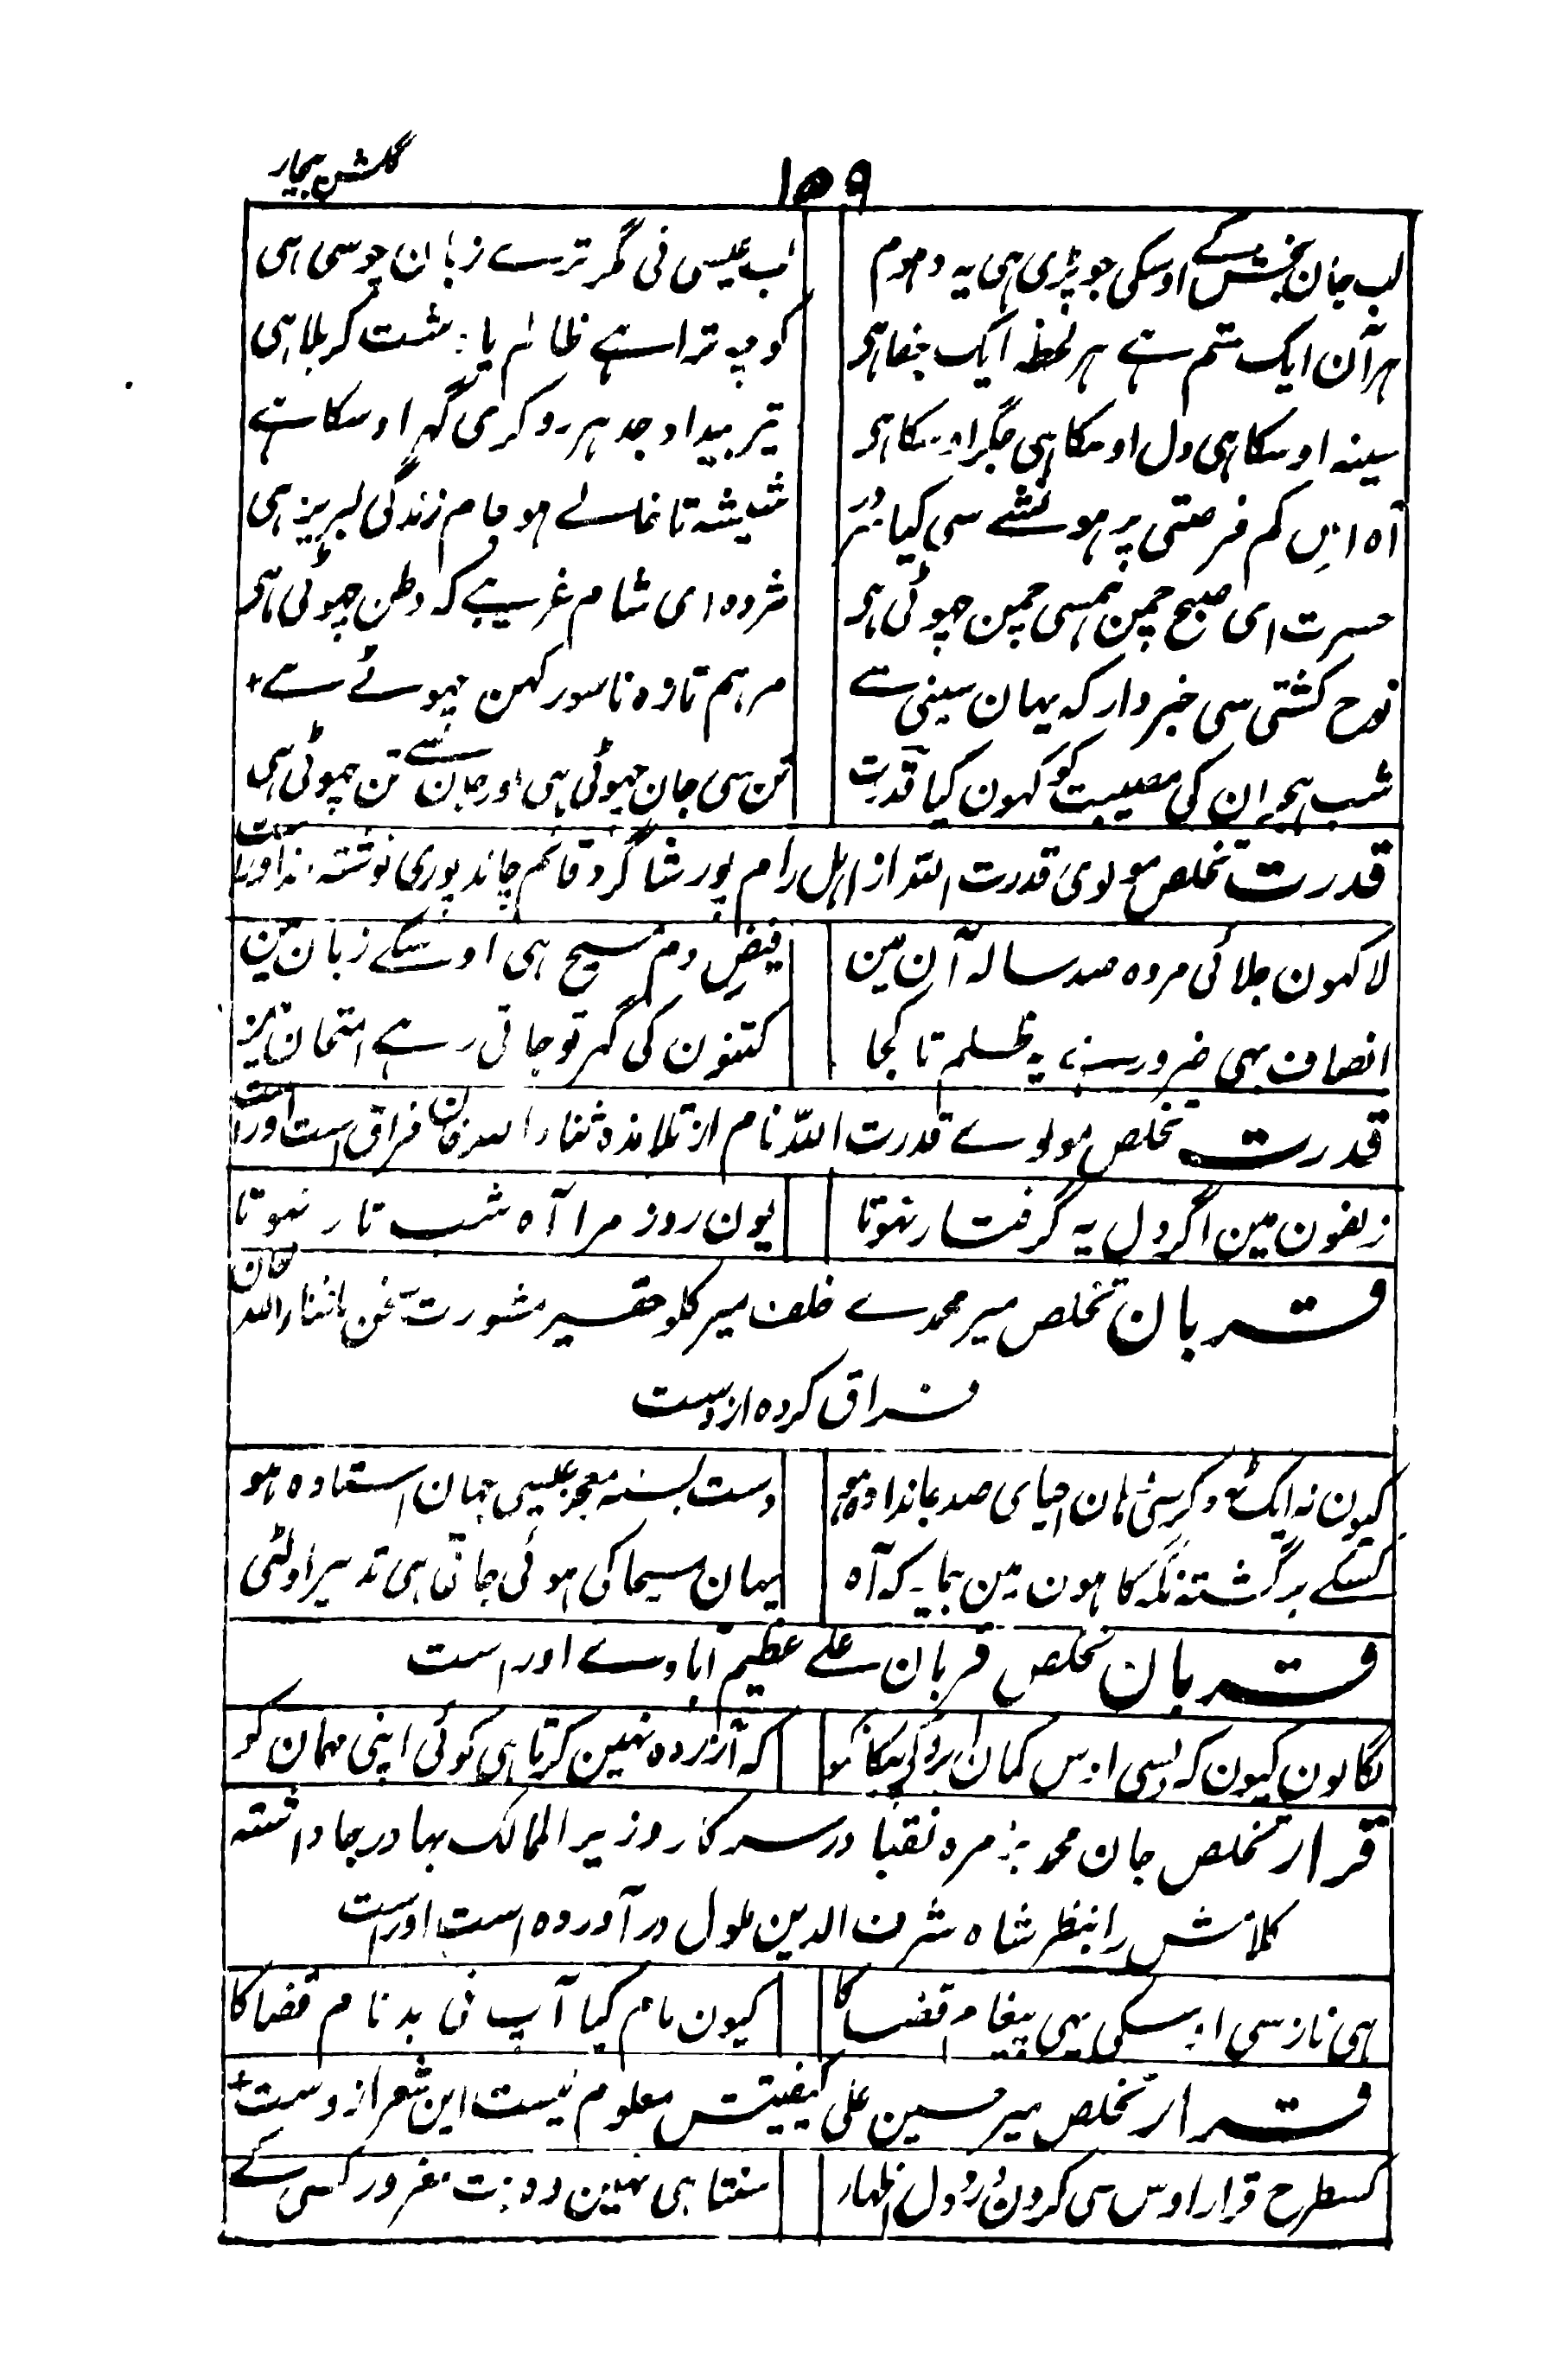 گلشن بیخار
۱۵۹
لب جان بخش کے اوسکی جو پڑی ہی یہ دہوم
لب عیسی نی مگر ترے زبان چوسی ہی
ہر آن ایک ستم ہے ہر لحظہ ایک جفا ہی
کوچہ ترا ہے ظالم یا دشت کربلا ہی
سینہ اوسکا ہی دل اوسکا ہی جگر اوسکا ہی
تیر بیداد جدہر رو کری گہر اوسکا ہے
آہ اس کم فرصتی پر ہو نشے سی کیا سرور
شیشہ تا خالے ہو جام زندگی لبریز ہی
حسرت ای صبح چمن ہمسی چمن چہوٹی ہی
مژدہ ای شام غریبے کہ وطن چہوٹی ہی
نوح کشتی سی خبردار کہ یہان سینی سے
مرہم تازہ ناسور کہن چہوٹے ہے
شب ہجران کی مصیبت کو کہون کیا قدرت
تن سی جان چہوٹی ہی اور جان سے تن چہوٹی ہی
قدرت تخلص مولوی قدرت اللہ از اہل رام پور شاگرد قائم چاند پوری نوشتہ شد اوراست
لاکہون جلائی مردہ صد سالہ آن مین
فیض دم مسیح ہی اوسکے زبان مین
انصاف بہی ضرور ہے یہ ظلم تا کجا
کتنون کی گہر تو جاتی رہے امتحان مین
قدرت تخلص مولوے قدرت اللہ نام از تلامذہ ثناء اللہ خان فراق است اوراست
زلفون مین اگر دل یہ گرفتار نہوتا
یون روز مرا آہ شب تار نہوتا
قربان تخلص میر محمدے خلف میر کلو حقیر مشورت سخن با ثناء اللہ خان
فراق کردہ ازوست
کیون نہ ایک ٹہوکر سی ہان احیای صد جاندادہ ہو
دست بستہ معجز عیسی جہان استادہ ہو
کسکے برگشتہ نگہ کا ہون مین بیمار کہ آہ
یہان مسیحا کی ہوئی جاتی ہی تدبیر اولٹی
قربان تخلص قربان علے عظیم آبادے اوراست
نکالون کیون کہ دلسی اوس کمان ابرو کی پیکان کو
کہ آزردہ نہین کرتا ہی کوئی اپنی مہمان کو
قرار تخلص جان محمد بزمرہ نقبا درسرکار وزیر الممالک بہادر جا داشتہ
کلامش را بنظر شاہ شرف الدین ملول درآوردہ است اوراست
ہی ناز سی اوسکی یہی پیغام قضا کا
کیون نام کیا آپ نی بدنام قضا کا
قرار تخلص میر حسین علی کیفیتش معلوم نیست این شعر ازوست
کسطرح قرار اوس سی کرون درد دل اظہار
سنتا ہی نہین وہ بت مغرور کسی کے